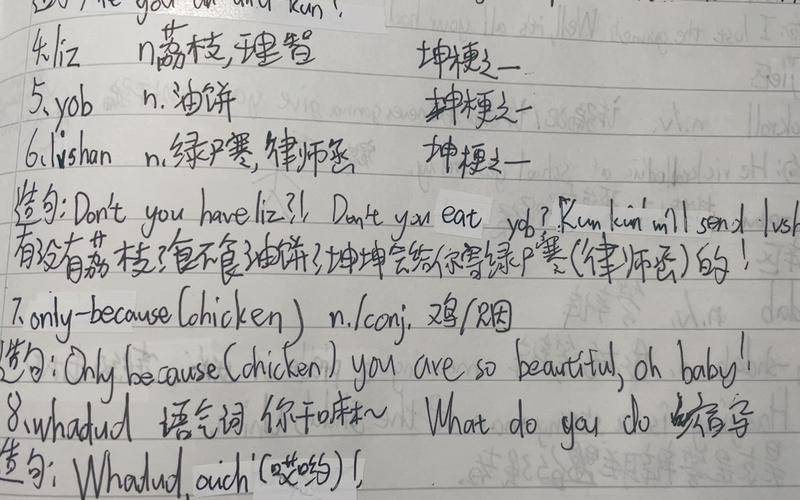 you an and kun!
4.liz n荔枝,理智 坤梗之一
5.yob n.油饼 坤梗之一
6.lvshan n.绿尸寒,律师函 坤梗之一
造句:Don't you have liz?! Don't you eat yob? "Kun kun" will send lvsh
有没有荔枝?食不食油饼?坤坤会给你寄绿尸寒(律师函)的!
7.only-because(chicken) n./conj. 鸡/只因
造句:Only because(chicken) you are so beautiful, oh baby!
8.whadud 语气词 你干嘛~ What do you do 缩写
造句: Whadud, ouch (哎哟)!